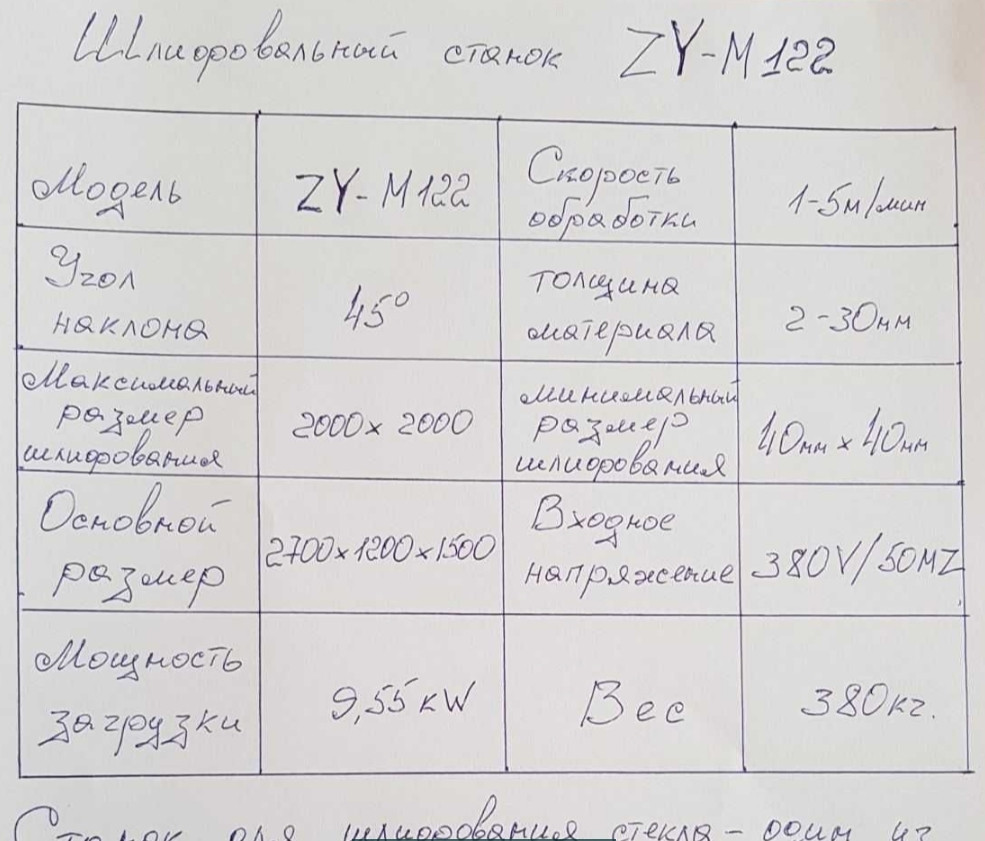 Шлифовальный станок ZY-M122
Модель
ZY-M122
Скорость
обработки
1-5м/мин
Угол
наклона
45°
толщина
материала
2-30мм
Максимальный
размер
шлифования
2000x2000
минимальный
размер
шлифования
40мм x 40мм
Основной
размер
2700x1200x1500
Входное
напряжение
380V/50MZ
Мощность
загрузки
9,55 kW
Вес
380кг.
Станок для шлифования стекла - один из